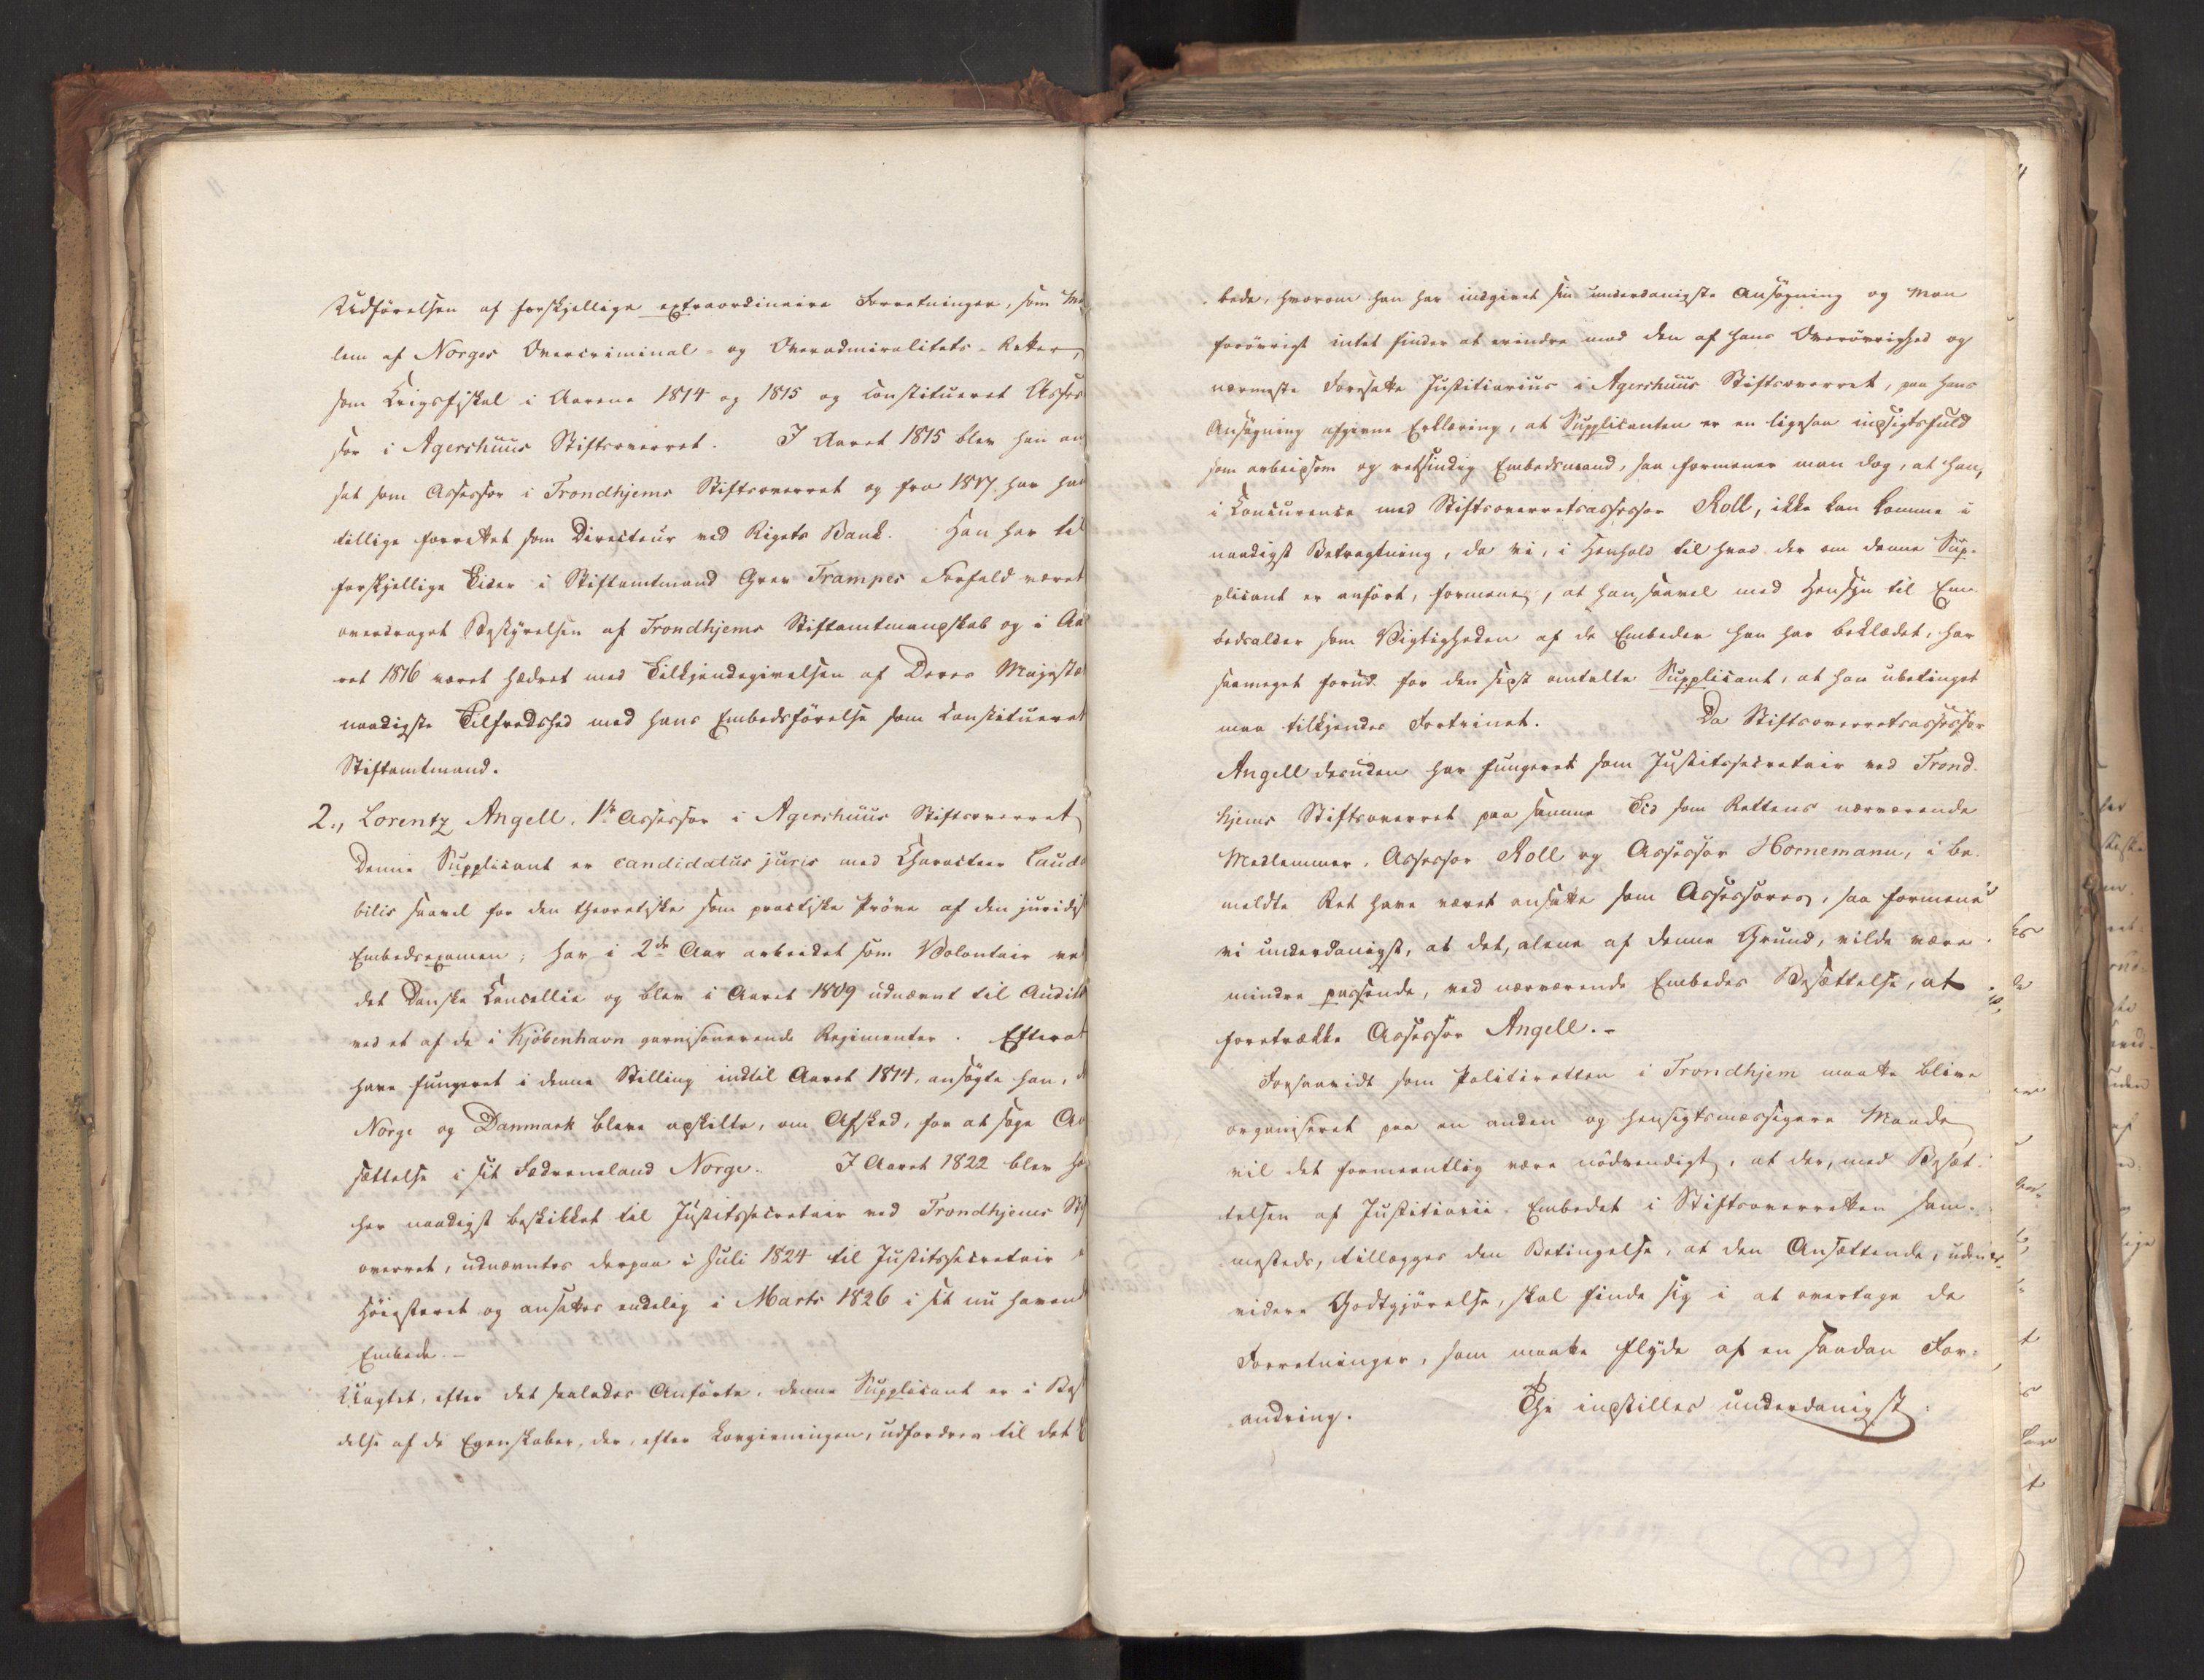 Udförelsen af forskjellige extraordinaire Forretninger, som Me
lem af Norges Overcriminal- og Overadmiralitets-Retter,
som Krigsfiskal i Aarene 1814 og 1815 og constitueret Asses
sor i Agershuus Stiftsoverret. I Aaret 1815 blev han an
sat som Assessor i Trondhjems Stiftsoverret og fra 1817 har han
tillige forrettet som Directeur ved Rigets Bank. Han har til
forskjellige Tider i Stiftamtmand Grev Trampes Forfald været
overdraget Bestyrelsen af Trondhjems Stiftamtmandskab og i Aa
ret 1816 været hædret med Tilkjendegivelsen af Deres Majestæ
naadigste Tilfredshed med hans Embedsförelse som constitueret
Stiftamtmand.
2., Lorentz Angell, 1ste Assessor i Agershuus Stiftsoverret
Denne Supplicant er candidatus juris med Characteer lauda
bilis saavel for den theoretiske som practiske Pröve af den juridisk
Embedsexamen; har i 2de Aar arbeidet som Volontair ved
det Danske Cancellie og blev i Aaret 1809 udnævnt til Audit
ved et af de i Kjöbenhavn garnisonerende Regimenter. Efterat
have fungeret i denne Stilling indtil Aaret 1814, ansögte han, d
Norge og Danmark bleve adskilte, om Afsked, for at söge An
sættelse i sit Fædreneland Norge. I Aaret 1822 blev han
her naadigst beskikket til Justitssecretair ved Trondhjems Stif
overret, udnævntes derpaa i Juli 1824 til Justitssecretair
Höiesteret og ansattes endelig i Marts 1826 i sit nu havend
Embede.-
Uagtet, efter det saaledes Anförte, denne Supplicant er i Besid
delse af de Egenskaber, der, efter Lovgivningen, udfordres til det
bede, hvorom han har indgivet sin underdanigste Ansögning og Man
forövrigt intet finder at erindre mod den af hans Overövrighed og
nærmeste Foresatte Justitiarius i Agershuus Stiftsoverret, paa hans
Ansögning afgivne Erklæring, at Supplicanten er en ligesaa indsigtsfuld
som arbeidsom og retsindig Embedsmand, saa formener man dog, at han,
i Concurence med Stiftsoverretsassessor Roll, ikke kan komme i
naadigst Betragtning, da vi, i Henhold til hvad der om denne Sup-
plicant er anfört, formene, at han, saavel med Hensyn til Em-
bedsalder som Vigtigheden af de Embeder han har beklædet, har
saameget forud for den sidst omtalte Supplicant, at han ubetinget
maa tilkjendes Fortrinet. Da Stiftsoverretsassessor
Angell desuden har fungeret som Justitssecretair ved Trond-
hjems Stiftsoverret paa samme Tid som Rettens nærværende
Medlemmer, Assessor Roll og Assessor Hornemann, i be-
meldte Ret have været ansatte som Assessorer, saa formene
vi underdanigst, at det, alene af denne Grund, vilde være
mindre passende, ved nærværende Embedes Besættelse, at
foretrække Assessor Angell.-
Forsaavidt som Politiretten i Trondhjem maatte blive
organiseret paa en anden og hensigtsmæssigere Maade
vil det formeentlig være nödvendigt, at der, med Besæt-
telsen af Justitiarii-Embedet i Stiftsoverretten sam-
mesteds, tillægges den Betingelse, at den Ansættende, uden
videre Godtgjörelse, skal finde sig i at overtage de
Forretninger, som maatte flyde af en saadan For-
andring. Thi indstilles underdanigst: